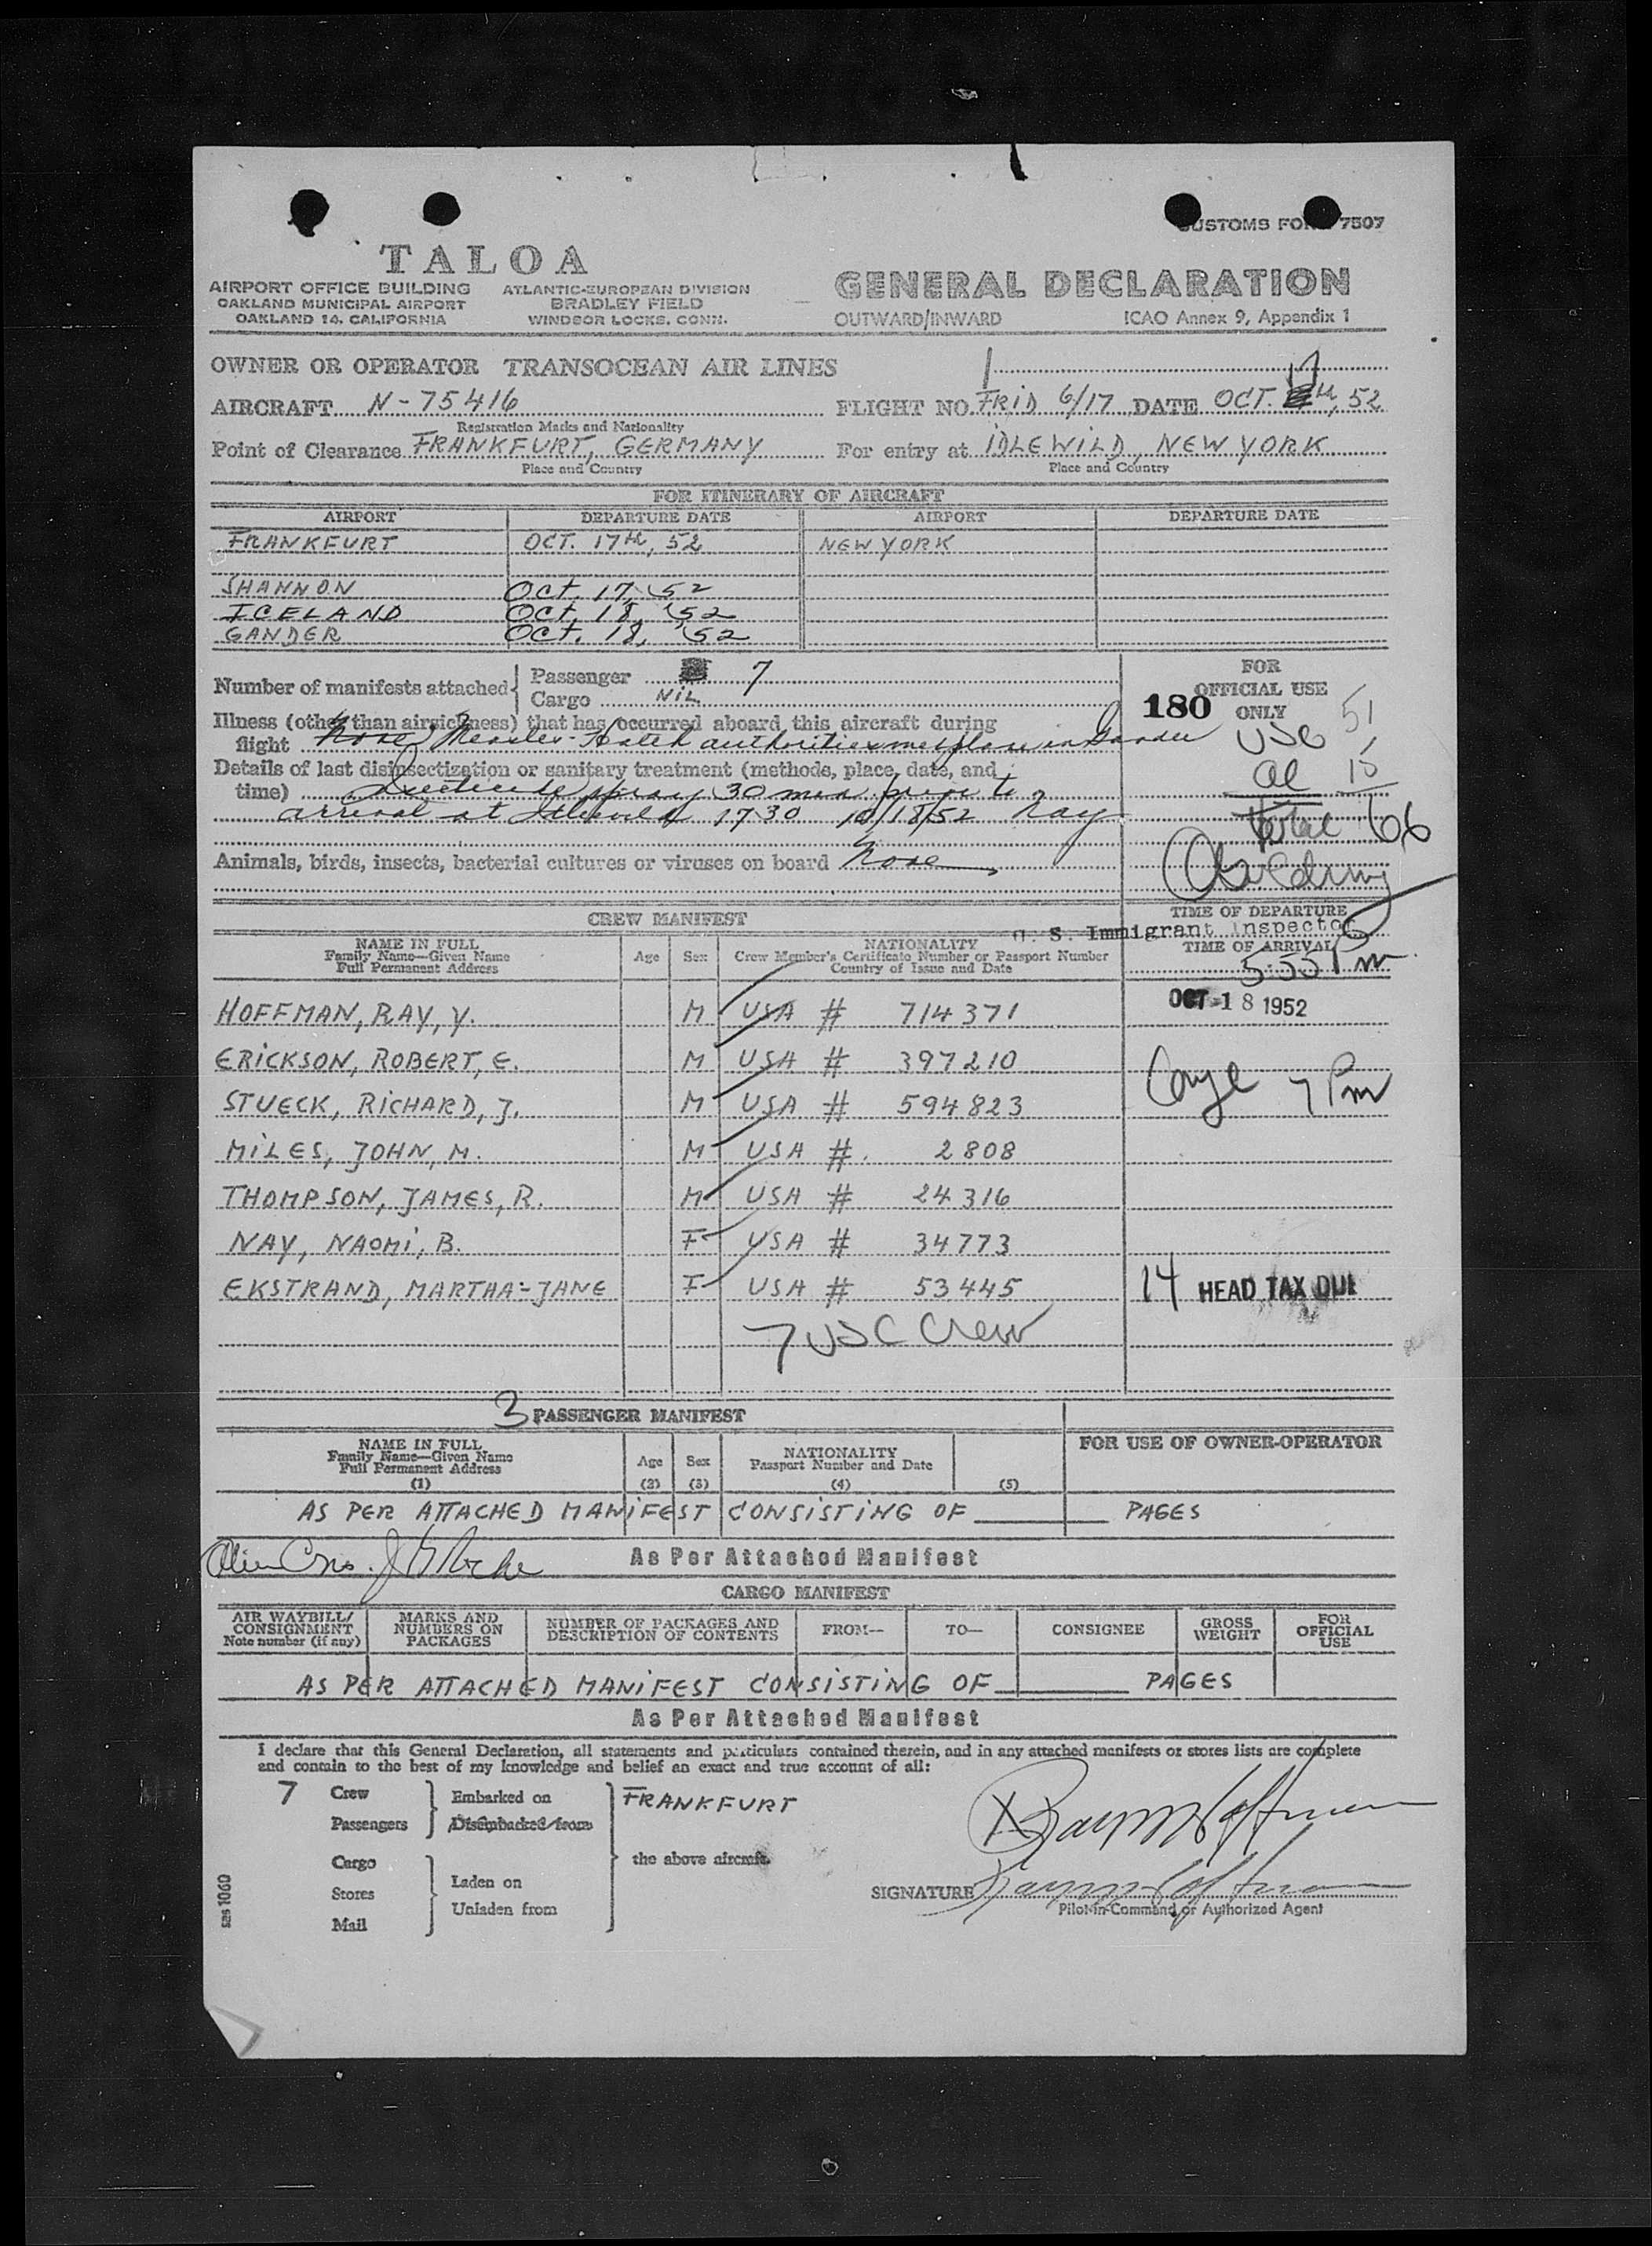 CUSTOMS FORM 7507
TALOA
AIRPORT OFFICE BUILDING
OAKLAND MUNICIPAL AIRPORT
OAKLAND 14, CALIFORNIA
ATLANTIC-EUROPEAN DIVISION
BRADLEY FIELD
WINDSOR LOCKS, CONN.
GENERAL DECLARATION
OUTWARD/INWARD ICAO Annex 9, Appendix 1
OWNER OR OPERATOR TRANSOCEAN AIR LINES
AIRCRAFT N-75416 FLIGHT NO. FRID 6/17 DATE OCT. 17 th, 52
Registration Marks and Nationality
Point of Clearance FRANKFURT, GERMANY For entry at IDLEWILD, NEW YORK
Place and Country Place and Country
FOR ITINERARY OF AIRCRAFT
AIRPORT DEPARTURE DATE AIRPORT DEPARTURE DATE
FRANKFURT OCT. 17th, 52 NEW YORK
SHANNON Oct. 17, 52
ICELAND Oct. 18, 52
GANDER Oct. 18, 52
Number of manifests attached Passenger 7
Cargo NIL
FOR
OFFICIAL USE
ONLY
180
51
USC
al 15
Total 66
Illness (other than airsickness) that has occurred aboard this aircraft during
flight None Measles - Health authorities met plane in Gander
Details of last disinsectization or sanitary treatment (methods, place, date, and
time) Insecticide spray 30 min. prior to
arrival at Idlewild 1730 10/18/52 Nay
Animals, birds, insects, bacterial cultures or viruses on board None
TIME OF DEPARTURE
U. S. Immigrant Inspector
TIME OF ARRIVAL
555 Pm
OCT 18 1952
7 Pm
CREW MANIFEST
NAME IN FULL
Family Name—Given Name
Full Permanent Address
Age Sex
NATIONALITY
Crew Member's Certificate Number or Passport Number
Country of Issue and Date
HOFFMAN, RAY, Y. M USA # 714371
ERICKSON, ROBERT, E. M USA # 397210
STUECK, RICHARD, J. M USA # 594823
MILES, JOHN, M. M USA # 2808
THOMPSON, JAMES, R. M USA # 24316
NAY, NAOMI, B. F USA # 34773
EKSTRAND, MARTHA-JANE F USA # 53445
14 HEAD TAX DUE
7 USC Crew
3 PASSENGER MANIFEST
NAME IN FULL
Family Name—Given Name
Full Permanent Address
(1)
Age
(2)
Sex
(3)
NATIONALITY
Passport Number and Date
(4)
(5)
FOR USE OF OWNER-OPERATOR
AS PER ATTACHED MANIFEST CONSISTING OF ______ PAGES
As Per Attached Manifest
CARGO MANIFEST
AIR WAYBILL/
CONSIGNMENT
Note number (if any)
MARKS AND
NUMBERS ON
PACKAGES
NUMBER OF PACKAGES AND
DESCRIPTION OF CONTENTS
FROM—
TO—
CONSIGNEE
GROSS
WEIGHT
FOR
OFFICIAL
USE
AS PER ATTACHED MANIFEST CONSISTING OF ______ PAGES
As Per Attached Manifest
I declare that this General Declaration, all statements and particulars contained therein, and in any attached manifests or stores lists are complete
and contain to the best of my knowledge and belief an exact and true account of all:
7 Crew
Passengers
Embarked on
Disembarked from
FRANKFURT
Cargo
Stores
Mail
Laden on
Unladen from
the above aircraft.
SIGNATURE
Pilot-in-Command or Authorized Agent
sas 1060